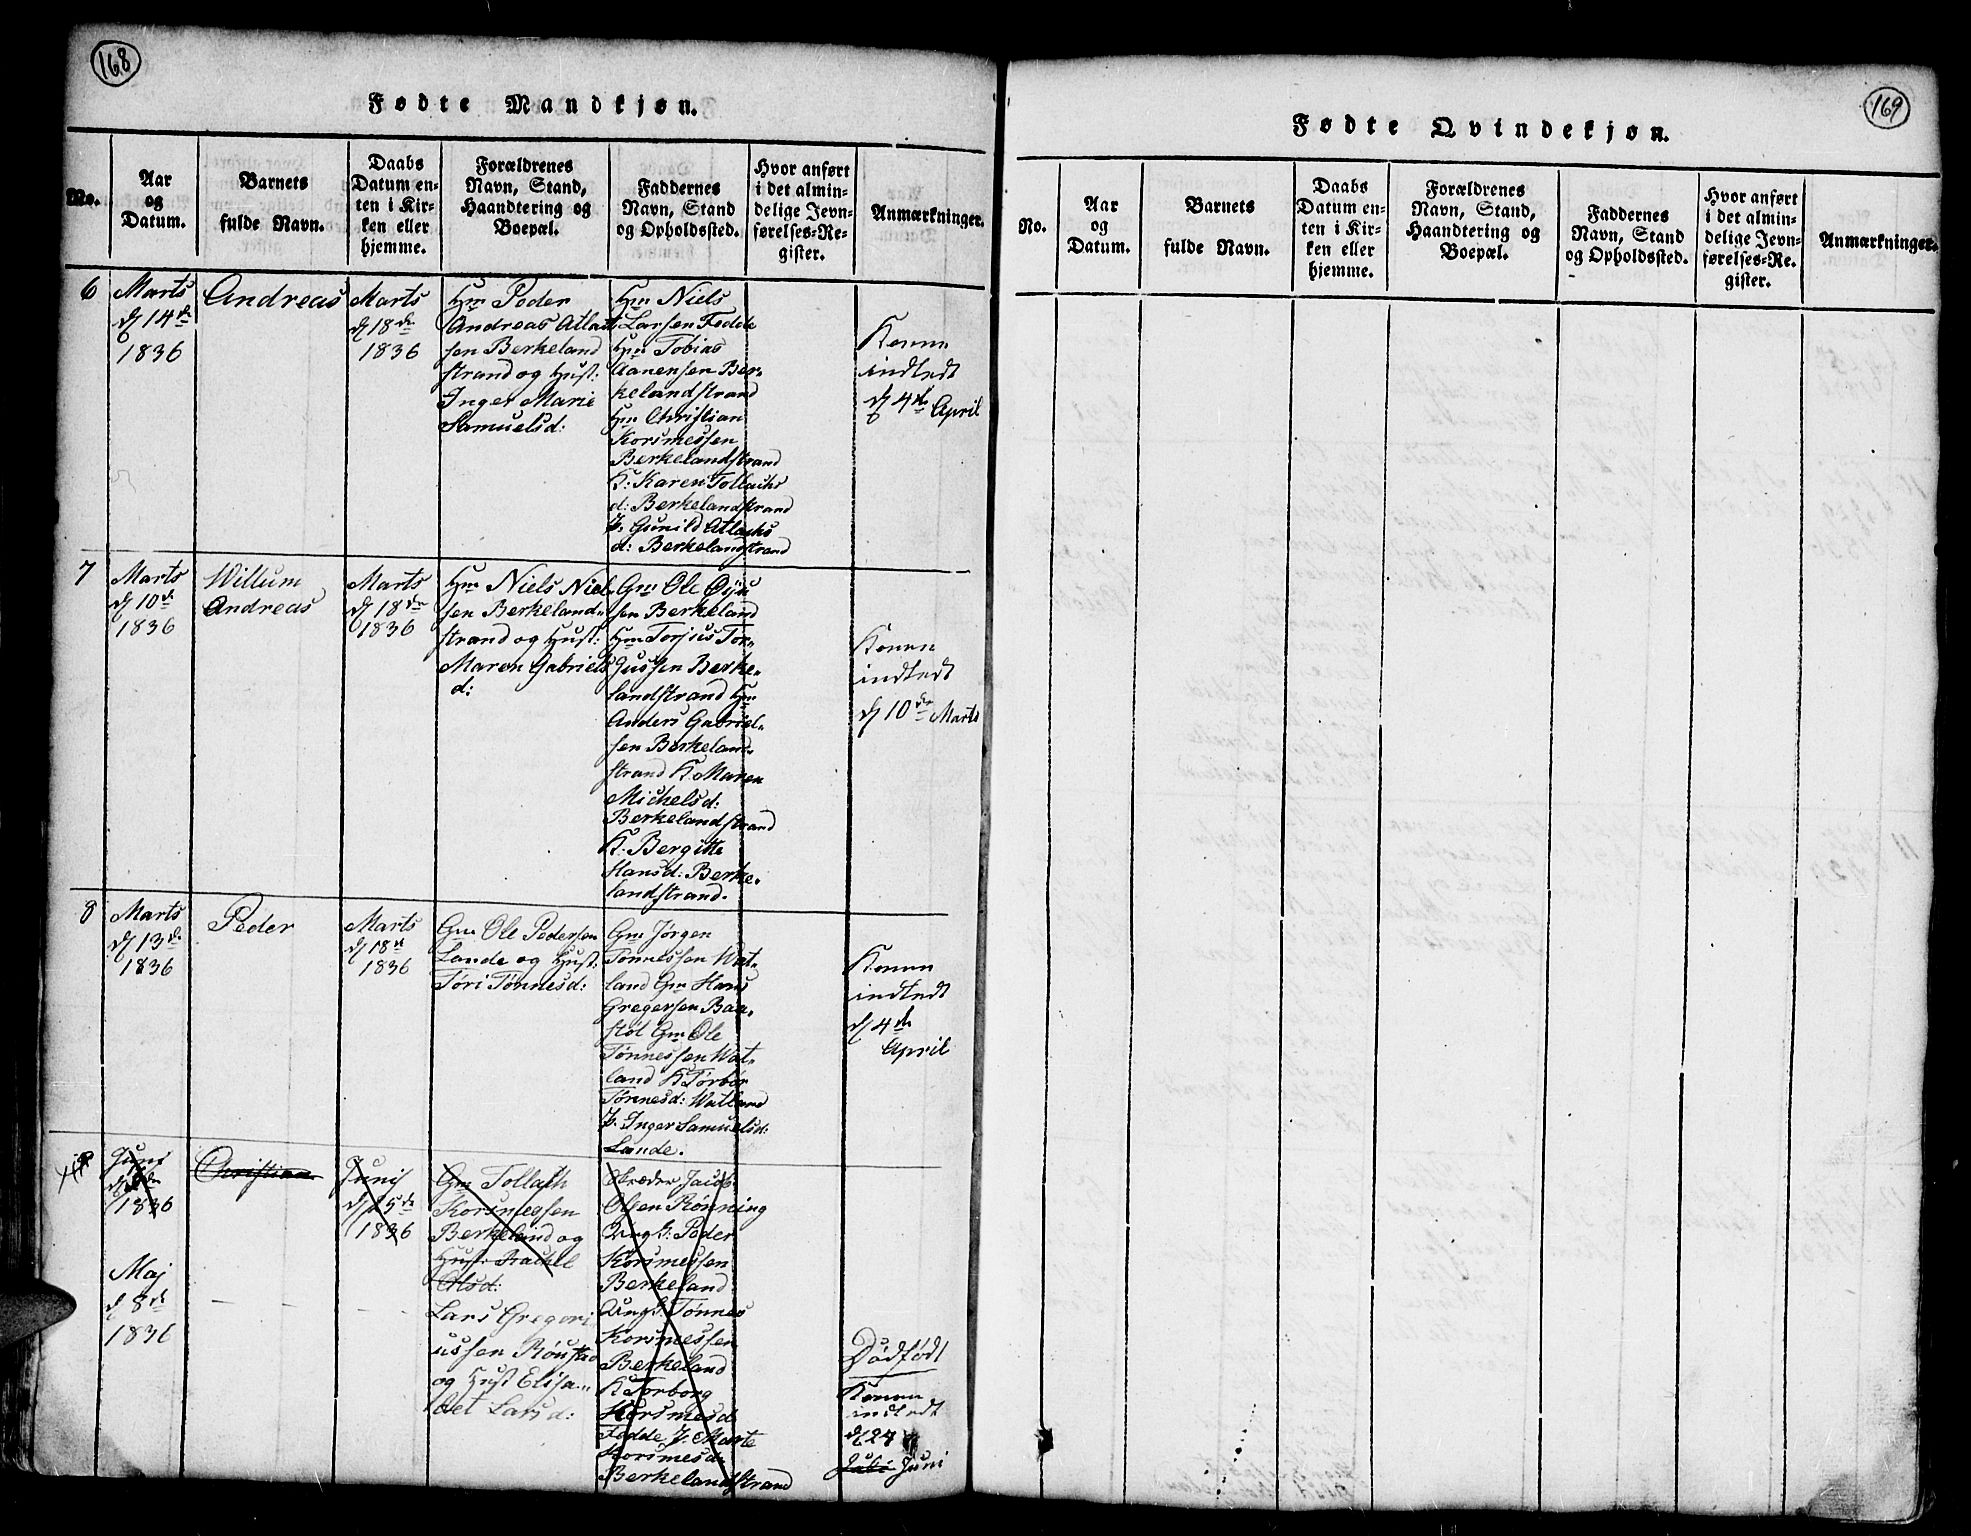 168
Fødte Mandkjøn.
No.
Aar
og
Datum.
Barnets
fulde Navn.
Daabs
Datum en-
ten i Kir-
ken eller
hjemme.
Forældrenes
Navn, Stand,
Haandtering og
Boepæl.
Faddernes
Navn, Stand
og Opholdssted.
Hvor anført
i det almin-
delige Jevn-
førelses-Re-
gister.
Anmærkninger.
6
Marts
d 14de
1836
Andreas
Marts
d 18de
1836
Hm Peder
Andreas Atlach
sen Berkeland
strand og Hust:
Inger Marie
Samuelsd:
Hm Niels
Larsen Fedde
Hm Tobias
Aanensen Ber-
kelandstrand
Hm Christian
Korsmessen
Berkelandstrand
K: Karen Tollachs
d: Berkelandstrand
P: Gunild Atlachs
d: Berkelandstrand
Konen
indledt
d 4de April
7
Marts
d 10de
1836
Willum
Andreas
Marts
d 18de
1836
Hm Niels Niel-
sen Berkeland-
strand og Hust:
Maren Gabriels
d:
Gm Ole
sen Berkeland
Hm Torjus Tor-
jussen Berke-
landstrand Hm
Anders Gabriel-
sen Berkeland-
strand K. Maren
Michelsd:
Berkelandstrand
K. Bergitte
Hansd: Berke-
landstrand.
Konen
indledt
d 10de Marts
8
Marts
d 13de
1836
Peder
Marts
d 18de
1836
Gm Ole Pedersen
Lande og Hust:
Töri Tönnesd:
Gm Jörgen
Tönnessen Wat-
land Gm Hans
Gregersen Baa-
stöl Gm Ole
Tönnessen Wat-
land K Törbör
Tönnesd: Watland
P: Inger Samuelsd:
Lande.
Konen
indledt
d 4de
April
Juni
1836
Christian
Junij
d 25de
1836
Gm Tollach
Korsmessen
Berkeland og
Hust: Rachel
Olsd:
Skræder Jacob
Olsen Rönning
Ungk: Peder
Korsmessen
Berkeland
Ungk: Tönnes
Korsmessen
Berkeland
K Torborg
Korsmesd:
Fedde P. Marte
Korsmesd:
Berkelandstrand
Maj
d 8de
1836
Lars Gregori
ussen Röustad
og Hust Elisa-
bet Larsd:
Dödfödt
Konen
indledt
d 24
Juli Juni
169
Fødte Qvindekjøn.
No.
Aar
og
Datum.
Barnets
fulde Navn.
Daabs
Datum en-
ten i Kir-
ken eller
hjemme.
Forældrenes
Navn, Stand,
Haandtering og
Boepæl.
Faddernes
Navn, Stand
og Opholdssted.
Hvor anført
i det almin-
delige Jevn-
førelses-Re-
gister.
Anmærkninger.